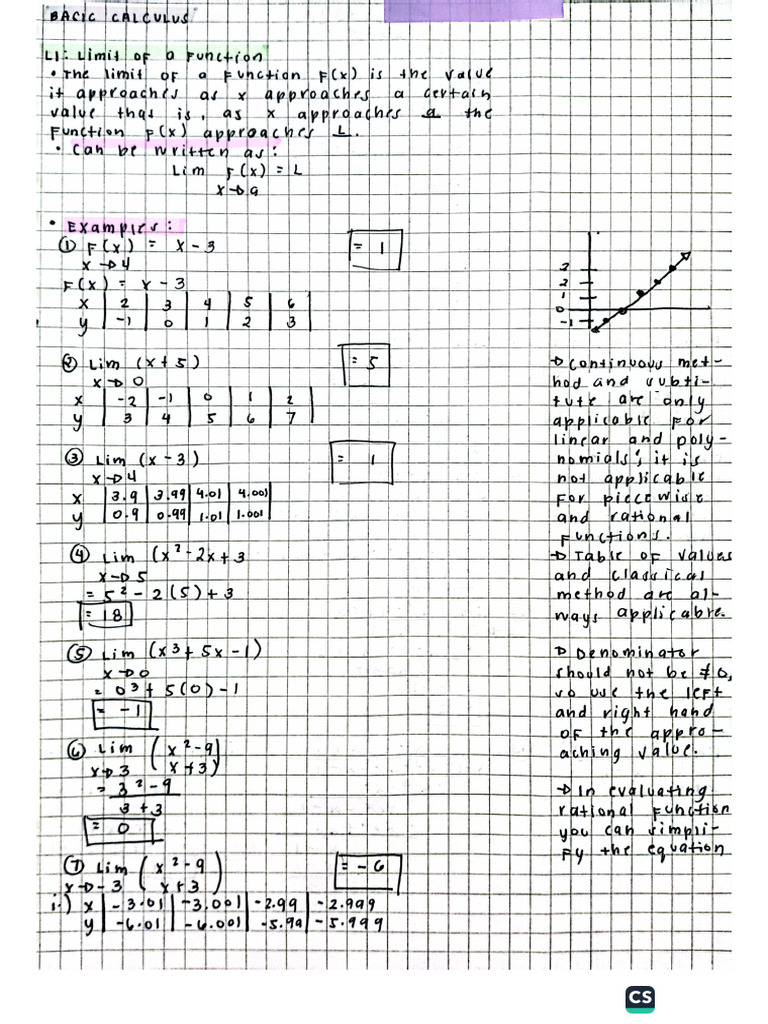 BACIC CALCULUS
L1: Limit OF a Function
• The limit OF a Function F(x) is the value
it approaches as x approaches a certain
value thqs is, as x approaches a the
Function F(x) approaches L.
• Can be written as:
Lim F(x) = L
x→a
• Examples:
① F(x) = x - 3
x→4
= 1
F(x) = x - 3
x | 2 | 3 | 4 | 5 | 6 |
y | -1 | 0 | 1 | 2 | 3 |
② Lim (x+5)
x→0
= 5
x | -2 | -1 | 0 | 1 | 2
y | 3 | 4 | 5 | 6 | 7
③ Lim (x-3)
x→4
= 1
x | 3.9 | 3.99 | 4.01 | 4.001
y | 0.9 | 0.99 | 1.01 | 1.001
④ Lim (x² - 2x + 3
x→5
= 5² - 2(5) + 3
= 18
⑤ Lim (x3 + 5x - 1)
x→0
= 0³ + 5(0) - 1
= -1
⑥ Lim (x² - 9)
x→3 (x+3)
= 3² - 9
3 + 3
= 0
⑦ Lim (x² - 9)
x→-3 (x+3)
= -6
i.) x | -3.01 | -3.001 | -2.99 | -2.999
y | -6.01 | -6.001 | -5.99 | -5.999
3
2
1
0
-1
→ Continuous met-
hod and subti-
tute are only
applicable For
linear and poly-
nomials; it is
not applicable
For piecewise
and rational
Functions.
→ Table OF values
and classical
method are al-
ways applicabre.
→ Denominator
should not be ≠0,
so use the left
and right hand
OF the appro-
aching value.
→ In evaluating
rational Function
you can simpli-
Fy the equation
CS